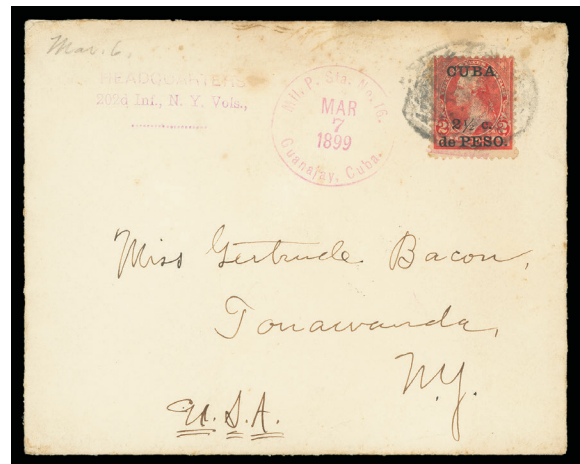 Mar. 6.
HEADQUARTERS
202d Inf., N. Y. Vols.,
Mil. P. Sta. No. 16.
MAR
7
1899
Guanajay, Cuba.
CUBA
2 2½ c. 2
de PESO.
Miss Gertrude Bacon,
Tonawanda,
N.Y.
U.S.A.